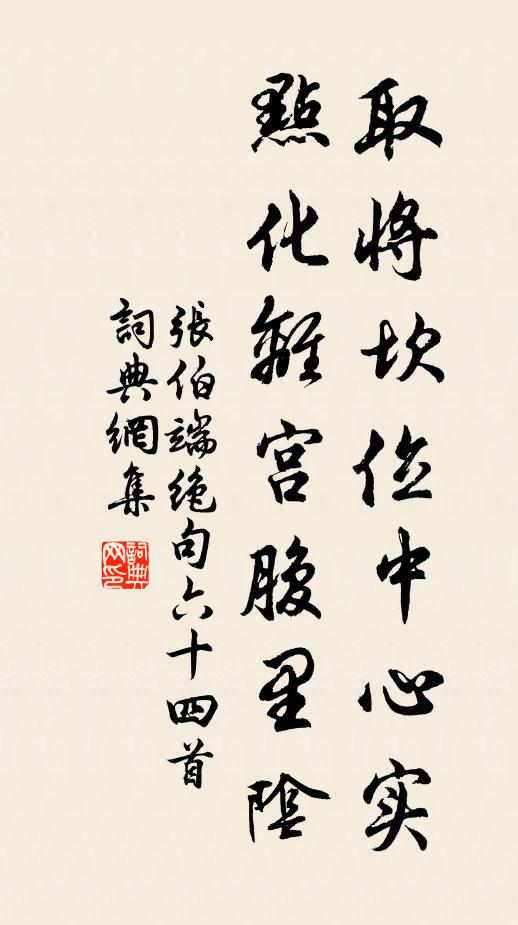 取将坎位中心实
點化離宫腹里陰
張伯端绝句六十四首
詞典網集
詞典网印